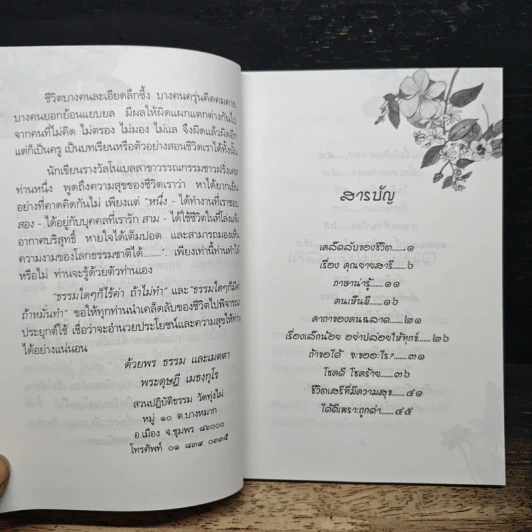 ชีวิตบางคนละเอียดลึกซึ้ง บางคนครุ่นคิดคมคาย
บางคนยอกย้อนแยบยล มีผลให้ผิดแผกแตกต่างกันไป
จากคนที่ไม่คิด ไม่ตรอง ไม่มอง ไม่แล จึงผิดแล้วผิดอีก
แต่ก็เป็นครู เป็นบทเรียนหรือตัวอย่างสอนชีวิตเราได้ทั้งนั้น
นักเขียนรางวัลโนเบลสาขาวรรณกรรมชาวฝรั่งเศส
ท่านหนึ่ง พูดถึงความสุขของชีวิตเราว่า หาได้ยากเย็น
อย่างที่คาดคิดกันไม่ เพียงแต่ "หนึ่ง - ได้ทำงานที่เราชอบ
สอง - ได้อยู่กับบุคคลที่เรารัก สาม - ได้ใช้ชีวิตในที่โล่งแจ้ง
อากาศบริสุทธิ์ หายใจได้เต็มปอด และสามารถมองเห็น
ความงามของโลกธรรมชาติได้......". เพียงเท่านี้ท่านทำได้
หรือไม่ ท่านจะรู้ด้วยตัวท่านเอง
"ธรรมใดๆก็ไร้ค่า ถ้าไม่ทำ" และ "ธรรมใดๆก็มีค่า
ถ้าหมั่นทำ" ขอให้ทุกท่านนำเคล็ดลับของชีวิตไปพิจารณา
ประยุกต์ใช้ เชื่อว่าจะอำนวยประโยชน์และความสุขให้ท่าน
ได้อย่างแน่นอน
ด้วยพร ธรรม และเมตตา
พระดุษฎี เมธงฺกุโร
สวนปฏิบัติธรรม วัดทุ่งไผ่
หมู่ ๑๐ ต.บางหมาก
อ.เมือง จ.ชุมพร ๘๖๐๐๐
โทรศัพท์ ๐๑ ๘๓๙ ๐๓๓๕
สารบัญ
เคล็ดลับของชีวิต......๑
เรื่อง คุณยายสารี......๖
ภาษาน่ารู้......๑๑
คนเห็นผี......๑๖
คาถาของคนฉลาด......๒๑
เรื่องเล็กน้อย อย่าปล่อยให้ทุกข์......๒๖
ถ้าขอได้ จะขออะไร?......๓๑
โชคดี โชคร้าย......๓๖
ชีวิตเสรีที่มีความสุข......๔๑
ได้ดีเพราะถูกด่า......๔๕